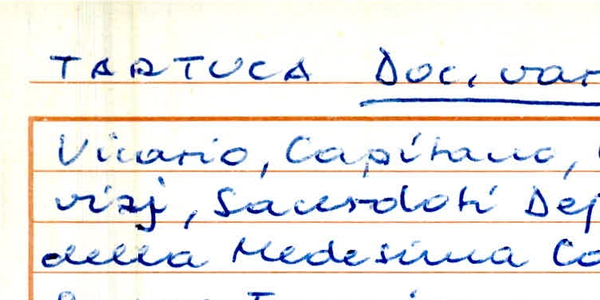 TARTUCA Doc. var
Vicario, Capitano,
vizj, Sacerdoti Dep
della Medesima Co